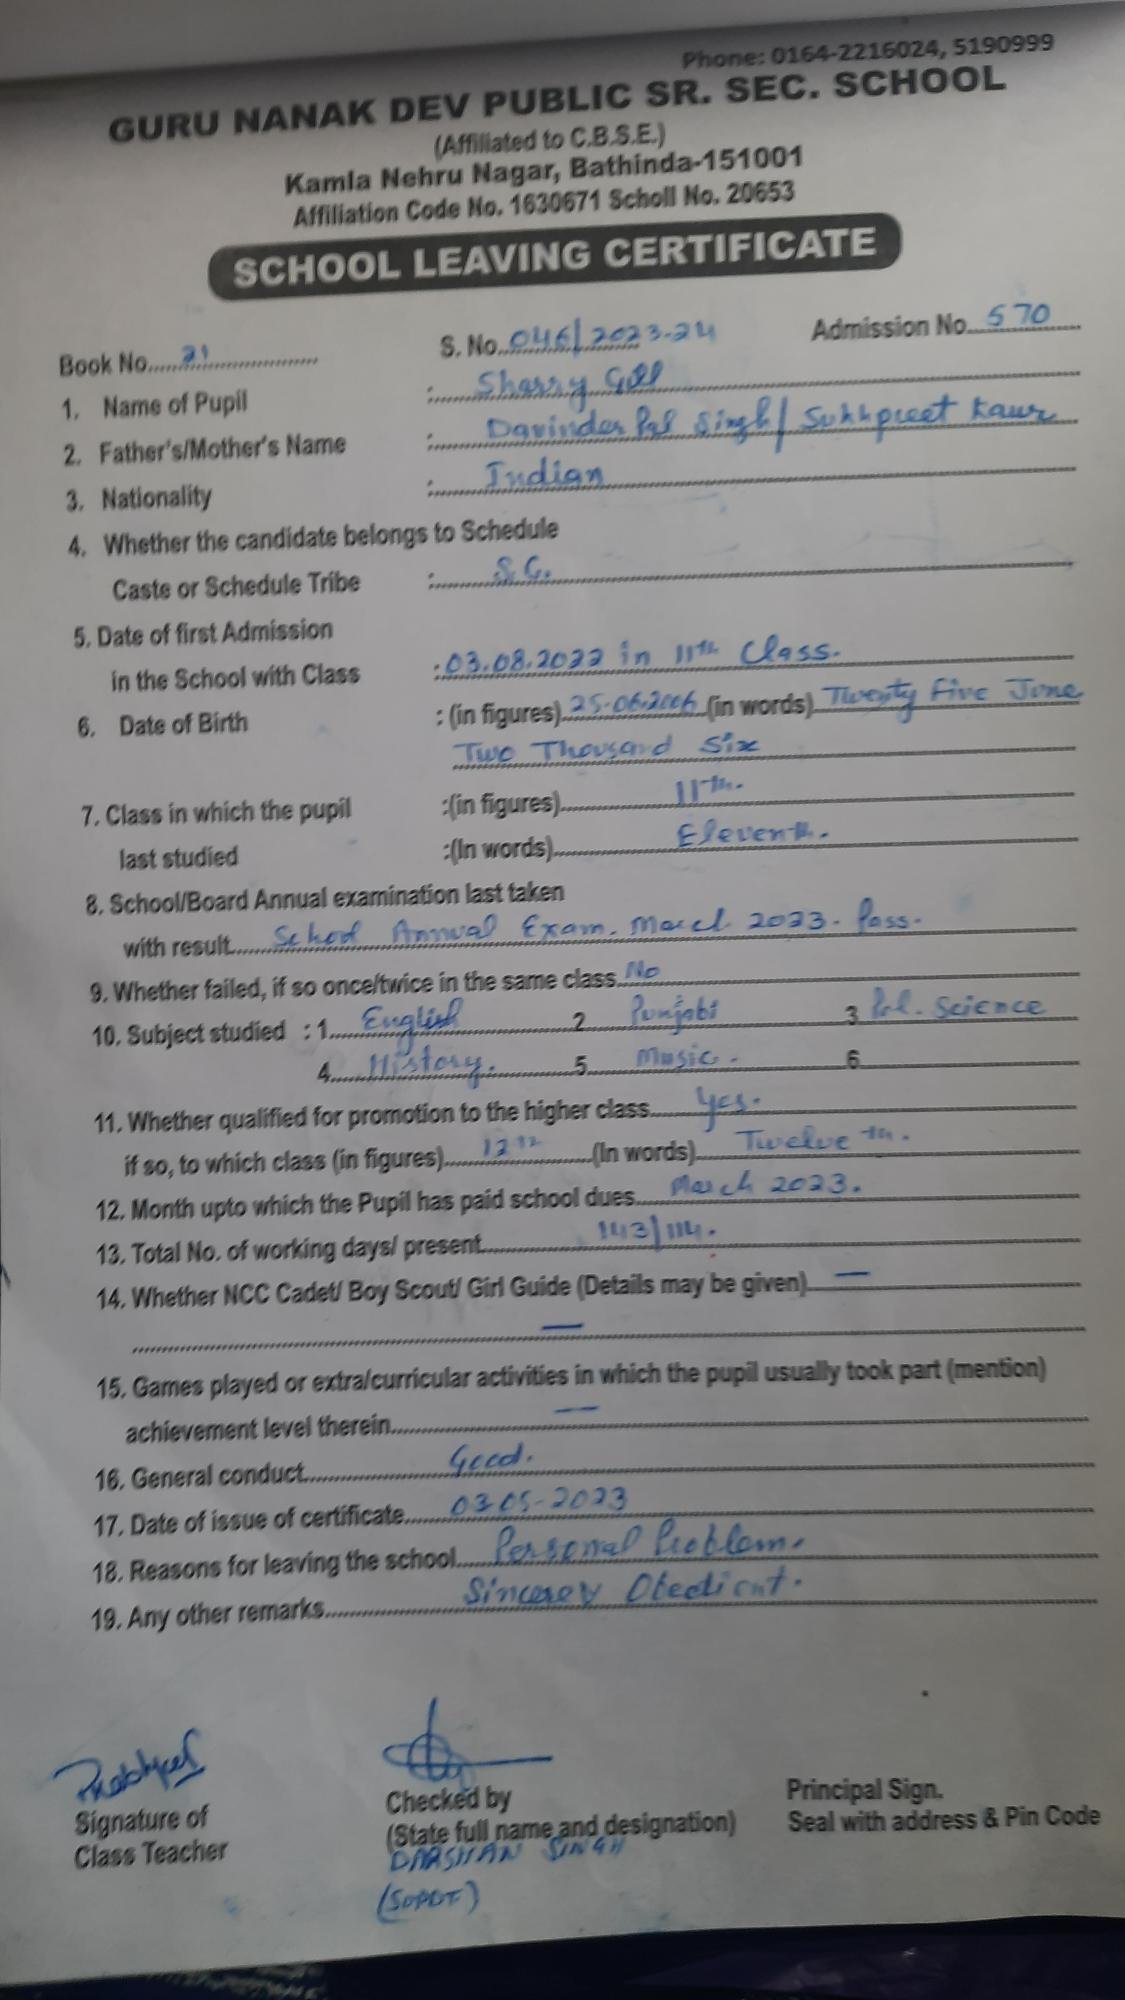 Phone: 0164-2216024, 5190999
GURU NANAK DEV PUBLIC SR. SEC. SCHOOL
(Affiliated to C.B.S.E.)
Kamla Nehru Nagar, Bathinda-151001
Affiliation Code No. 1630671 Scholl No. 20653
SCHOOL LEAVING CERTIFICATE
Book No. 21 S. No. 046/2023-24 Admission No. 570
1. Name of Pupil : Sharry Gill
2. Father's/Mother's Name : Davinder Pal Singh/ Sukhpreet Kaur
3. Nationality : Indian
4. Whether the candidate belongs to Schedule
Caste or Schedule Tribe : S.C.
5. Date of first Admission
in the School with Class : 03.08.2022 in 11th Class.
6. Date of Birth : (in figures) 25-06-2006 (in words) Twenty Five June
Two Thousand Six
7. Class in which the pupil :(in figures) 11th.
last studied :(In words) Eleventh.
8. School/Board Annual examination last taken
with result School Annual Exam. March 2023. Pass.
9. Whether failed, if so once/twice in the same class No
10. Subject studied : 1. English 2 Punjabi 3 Pol. Science
4. History. 5. Music. 6
11. Whether qualified for promotion to the higher class Yes.
if so, to which class (in figures) 12th (In words) Twelveth.
12. Month upto which the Pupil has paid school dues March 2023.
13. Total No. of working days/ present 143/114.
14. Whether NCC Cadet/ Boy Scout/ Girl Guide (Details may be given) —
—
15. Games played or extra/curricular activities in which the pupil usually took part (mention)
achievement level therein —
16. General conduct Good.
17. Date of issue of certificate 03-05-2023
18. Reasons for leaving the school Personal Problem.
19. Any other remarks Obedient.
Signature of
Class Teacher
Checked by
(State full name and designation)
DARSHAN SINGH
(SUPDT)
Principal Sign.
Seal with address & Pin Code